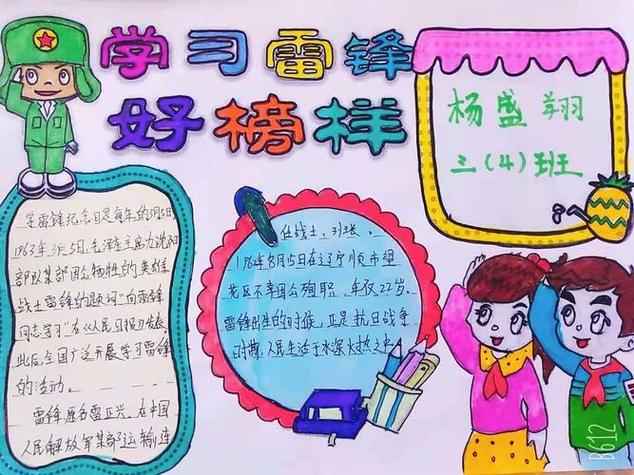 学习雷锋
好榜样
杨盛翔
三(4)班
学雷锋纪念日是每年的3月5日
1963年3月5日,毛泽东主席为沈阳
部队某部因公牺牲的英雄
战士雷锋的题词"向雷锋
同志学习"为《人民日报》发表
此后全国广泛开展学习雷锋
的活动。
雷锋原名雷正兴,在中国
人民解放军某部运输连
任战士、班长。
8月15日在辽宁抚顺市望
花区不幸因公殉职,年仅22岁。
雷锋出生的时候,正是抗日战争
时期,人民生活于水深火热之中
B612